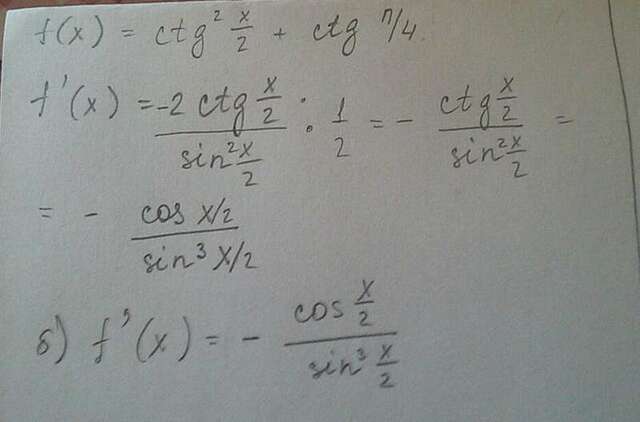 f(x) = ctg² x/2 + ctg π/4.
f'(x) = -2 ctg x/2 / sin² x/2 : 1/2 = - ctg x/2 / sin² x/2 =
= - cos x/2 / sin³ x/2
б) f'(x) = - cos x/2 / sin³ x/2